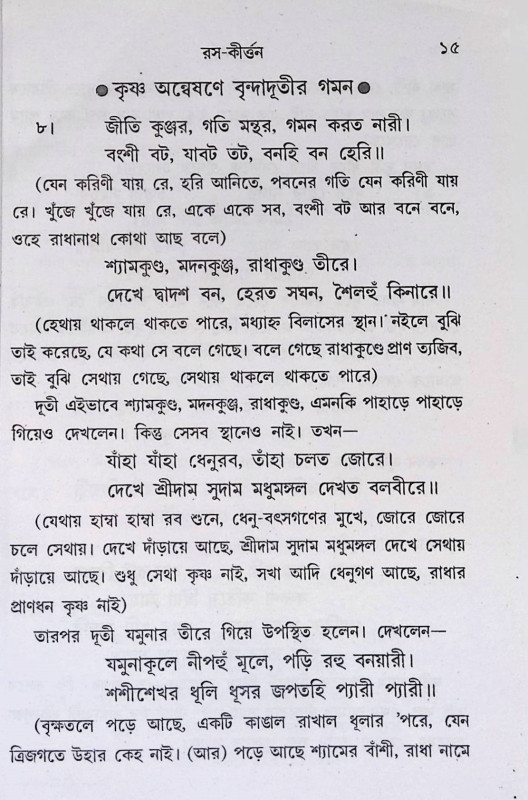 রস-কীর্ত্তন ১৫
● কৃষ্ণ অন্বেষণে বৃন্দাদূতীর গমন ●
৮। জীতি কুঞ্জর, গতি মন্থর, গমন করত নারী।
বংশী বট, যাবট তট, বনহি বন হেরি॥
(যেন করিণী যায় রে, হরি আনিতে, পবনের গতি যেন করিণী যায়
রে। খুঁজে খুঁজে যায় রে, একে একে সব, বংশী বট আর বনে বনে,
ওহে রাধানাথ কোথা আছ বলে)
শ্যামকুণ্ড, মদনকুঞ্জ, রাধাকুণ্ড তীরে।
দেখে দ্বাদশ বন, হেরত সঘন, শৈলহুঁ কিনারে॥
(হেথায় থাকলে থাকতে পারে, মধ্যাহ্ন বিলাসের স্থান। নইলে বুঝি
তাই করেছে, যে কথা সে বলে গেছে। বলে গেছে রাধাকুণ্ডে প্রাণ ত্যজিব,
তাই বুঝি সেথায় গেছে, সেথায় থাকলে থাকতে পারে)
দূতী এইভাবে শ্যামকুণ্ড, মদনকুঞ্জ, রাধাকুণ্ড, এমনকি পাহাড়ে পাহাড়ে
গিয়েও দেখলেন। কিন্তু সেসব স্থানেও নাই। তখন—
যাঁহা যাঁহা ধেনুরব, তাঁহা চলত জোরে।
দেখে শ্রীদাম সুদাম মধুমঙ্গল দেখত বলবীরে॥
(যেথায় হাম্বা হাম্বা রব শুনে, ধেনু-বৎসগণের মুখে, জোরে জোরে
চলে সেথায়। দেখে দাঁড়ায়ে আছে, শ্রীদাম সুদাম মধুমঙ্গল দেখে সেথায়
দাঁড়ায়ে আছে। শুধু সেথা কৃষ্ণ নাই, সখা আদি ধেনুগণ আছে, রাধার
প্রাণধন কৃষ্ণ নাই)
তারপর দূতী যমুনার তীরে গিয়ে উপস্থিত হলেন। দেখলেন—
যমুনাকূলে নীপহুঁ মূলে, পড়ি রহু বনয়ারী।
শশীশেখর ধূলি ধূসর জপতহি প্যারী প্যারী॥
(বৃক্ষতলে পড়ে আছে, একটি কাঙাল রাখাল ধূলার 'পরে, যেন
ত্রিজগতে উহার কেহ নাই। (আর) পড়ে আছে শ্যামের বাঁশী, রাধা নামে